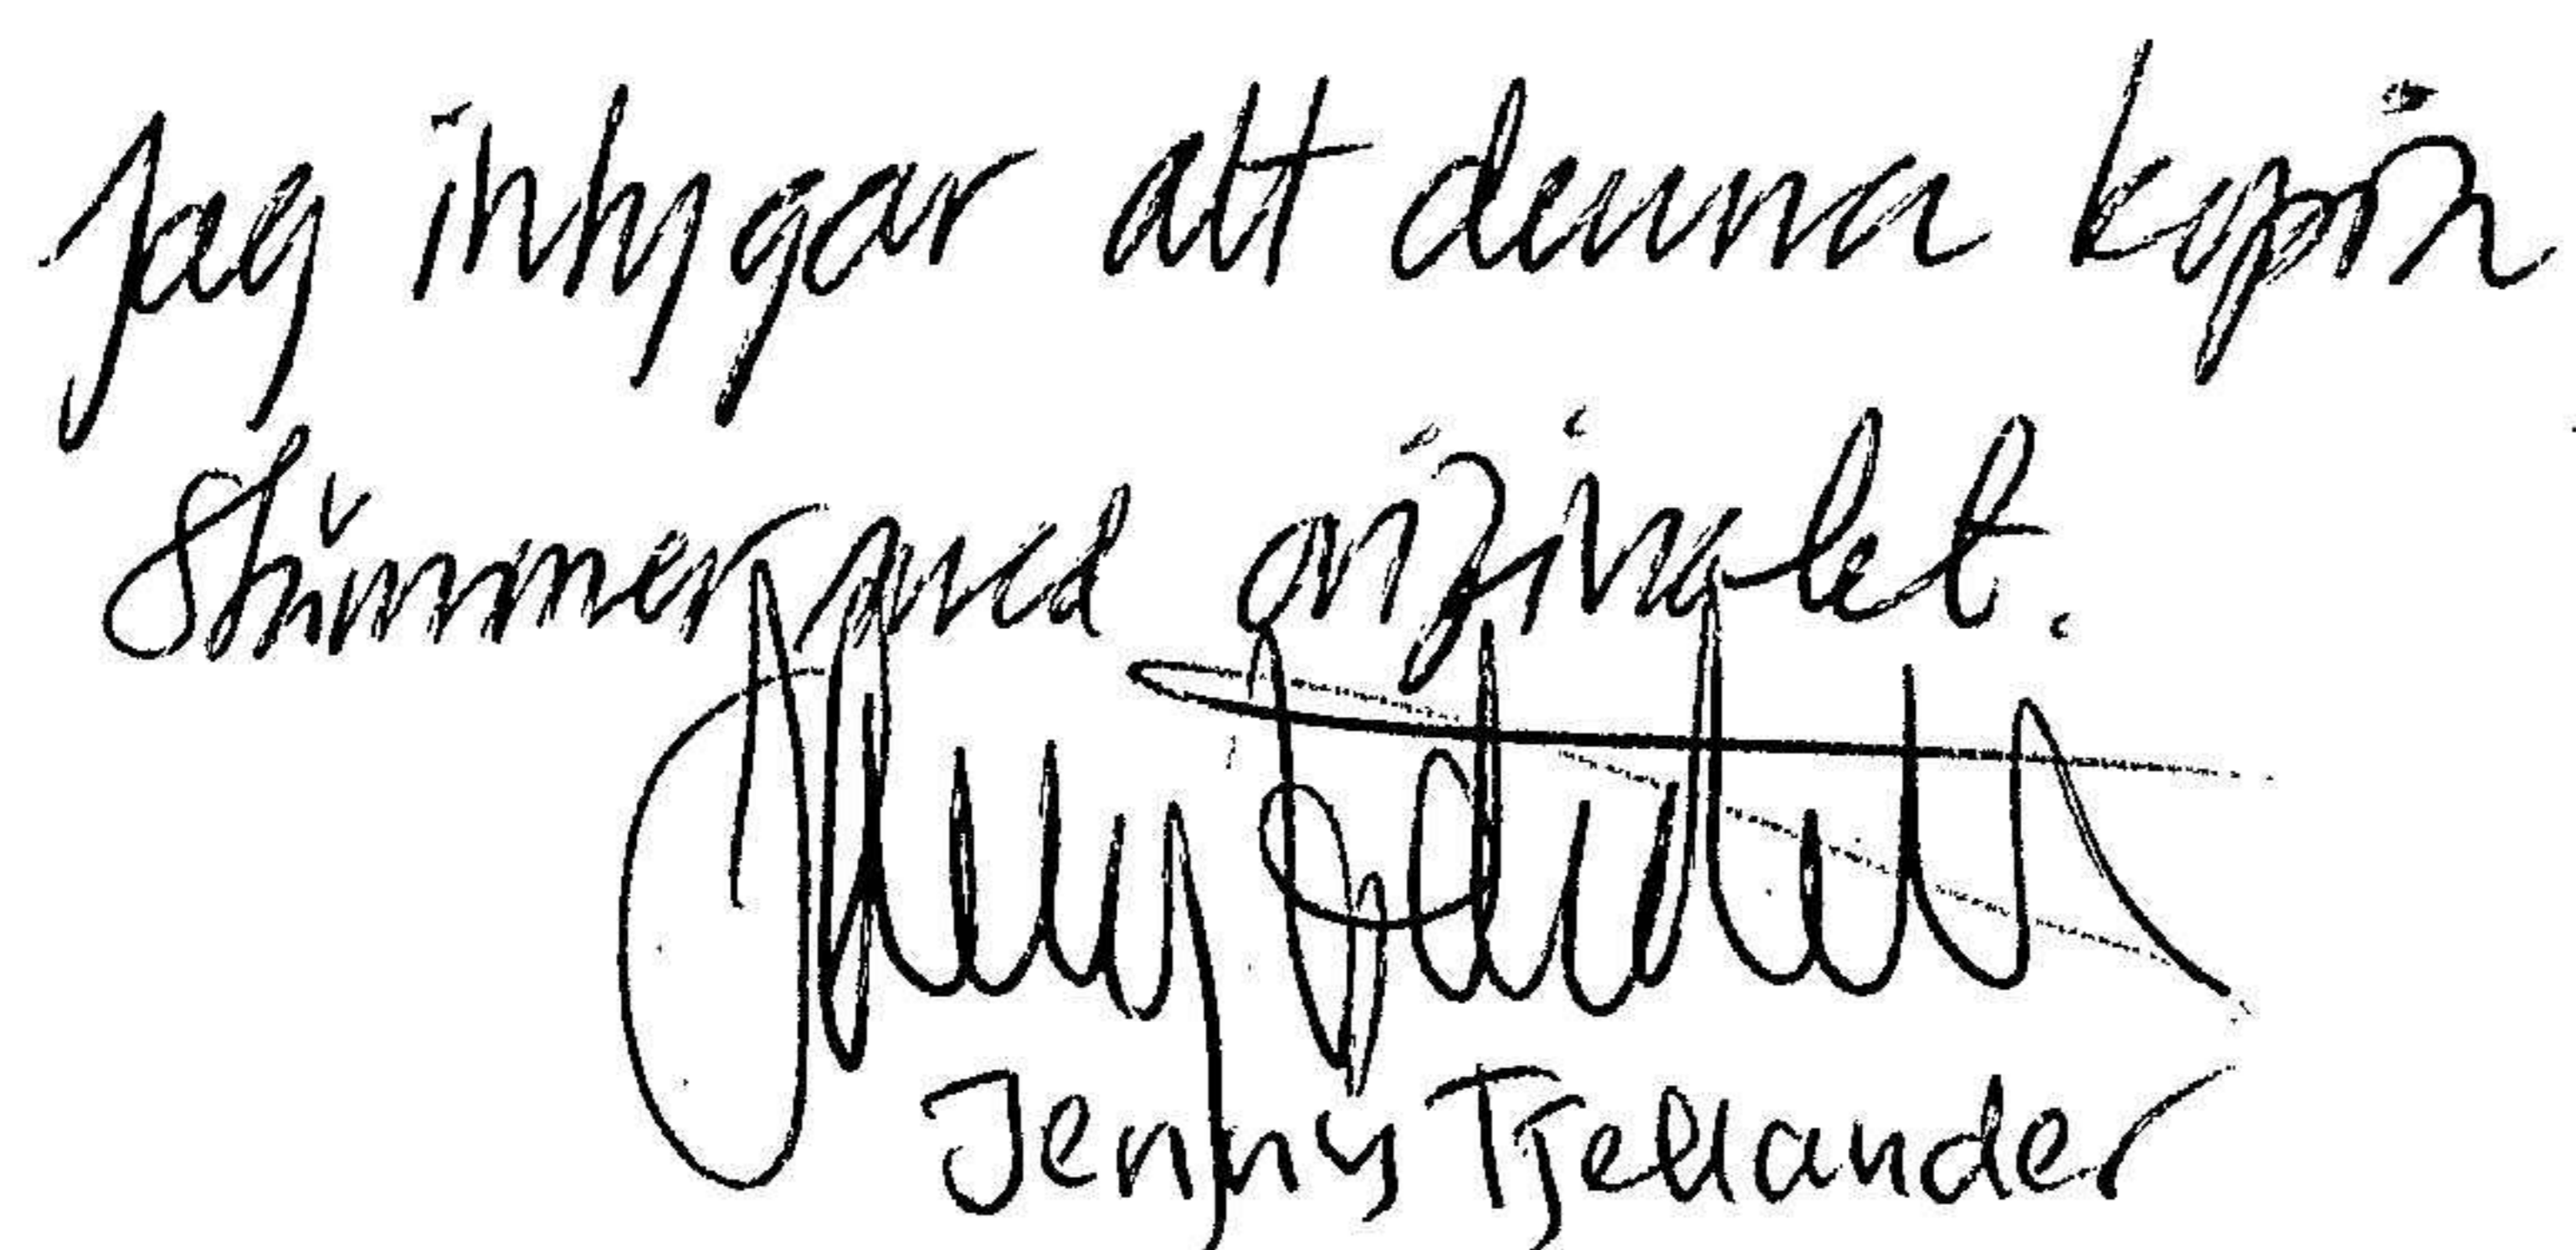 Jag intygar att denna kopia
stämmer med originalet.
Jenny Tjellander